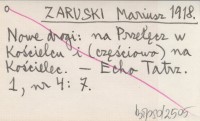 ZARUSKI Mariusz 1918.
Nowe drogi: na Przełęcz w
Kościelcu i (częściowo) na
Kościelec. — Echo Tatrz.
1, nr 4: 7.
bsp50/2505